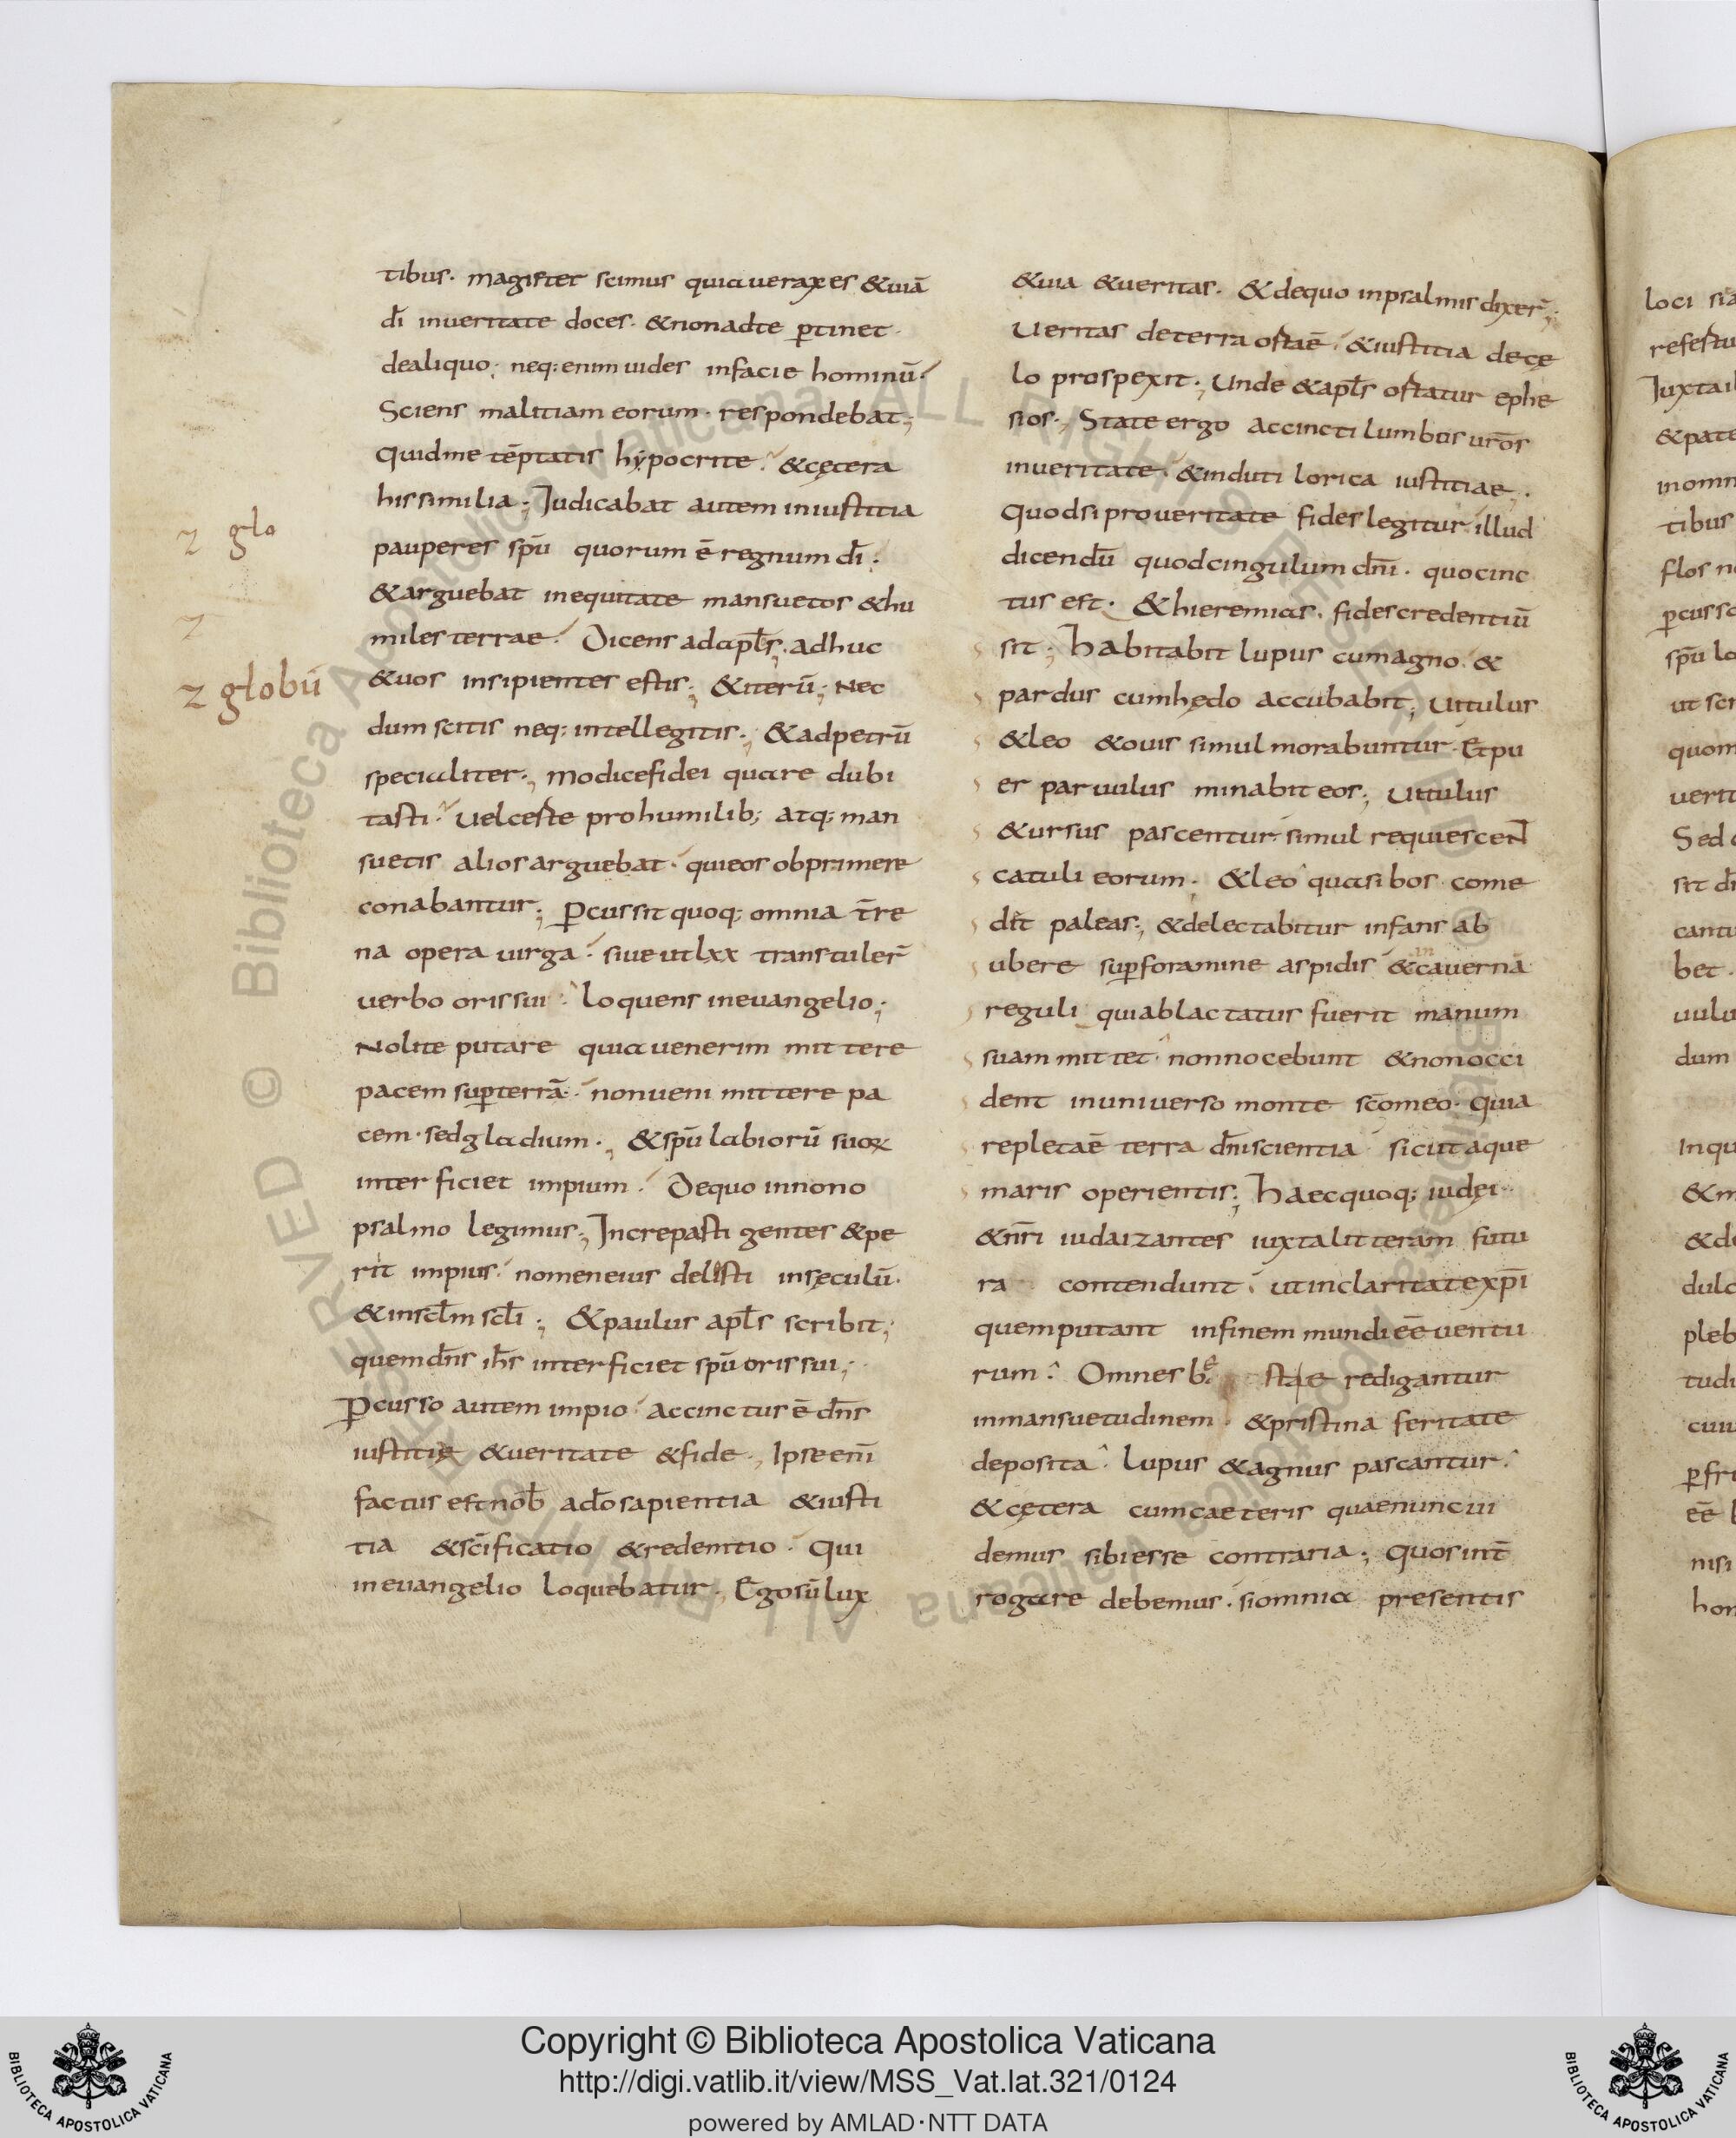 tibus. magister scimus quia uerax es & uiā
dī inueritate doces. & non adte ptinet.
dealiquo; neq: enim uides infacie hominū.
Sciens malitiam eorum. respondebat;
quid me tēptatis hypocrite. & cętera
his similia; Iudicabat autem iniustitia
pauperes spū quorum ē regnum dī.
& arguebat inequitate mansuetos & hu
miles terrae. Dicens adapłs. adhuc
& uos insipientes estis; & iterū; Nec
dum scitis neq: intellegitis; & adpetrū
specialiter; modice fidei quare dubi
tasti. uel ceste pro humilib; atq; man
suetis alios arguebat. qui eos obprimere
conabantur; Pcussit quoq; omnia t̄re
na opera uirga. siue ut lxx transtuler̄
uerbo oris sui. loquens ineuangelio;
Nolite putare quia uenerim mittere
pacem sup terrā. non ueni mittere pa
cem. sed gladium; & spū labiorū suoꝝ
interficiet impium. De quo in nono
psalmo legimus; Increpasti gentes & pe
riit impius. nomen eius delesti insęculū.
& inscłm scłi; & paulus apłs scribit;
quem dn̄s ih̄s interficiet spū oris sui;
Pcusso autem impio accinctus ē dn̄s
iustitię & ueritate & fide; Ipse eni̅
factus est nob̄ ado sapientia & iusti
tia & sc̄ificatio & redemtio. Qui
ineuangelio loquebatur. Ego sū lux
& uia & ueritas. & dequo inpsalmis dixer̄;
Ueritas deterra osta ē. & iustitia de cę
lo prospexit; Unde & apłs ostatur ephe
sios; State ergo accincti lumbos uros
inueritate. & induti lorica iustitiae.
Quod si pro ueritate fides legitur. illud
dicendū quod cingulum dni̅. quo cinc
tus est. & hieremias. fides credentiū
sit; habitabit lupus cum agno. &
pardus cum hędo accubabit; Uitulus
& leo & ouis simul morabuntur. Et pu
er paruulus minabit eos; Uitulus
& ursus pascentur. simul requiescent
catuli eorum. & leo quasi bos come
dit paleas; & delectabitur infans ab
ubere sup foramine aspidis & in cauerna
reguli qui ablactatus fuerit manum
suam mittet. non nocebunt & non occi
dent in uniuerso monte sc̄o meo. quia
repleta ē terra dn̄i scientia sicut aque
maris operientis; haec quoq; iudęi
& nr̄i iudaizantes iuxta litteram futu
ra contendunt. ut in claritate xp̄i
quem putant infinem mundi eē uentu
rum. Omnes bestiae redigantur
in mansuetudinem. & pristina feritate
deposita. lupus & agnus pascantur.
& cętera cum caeteris quae nunc ui
demus sibi esse contraria; Quos int̄
rogare debemus. si omnia presentis
z glo
z
z globū
loci
Iuxta
& pate
inomn
tibus
flos
pcusso
ut
quom
uerit
Sed
sit dī
cantu
bet
uulu
dum
inqu
& m
& de
dulc
pleb
tudi
cuiu
eē
nisi
hom
Copyright © Biblioteca Apostolica Vaticana
http://digi.vatlib.it/view/MSS_Vat.lat.321/0124
powered by AMLAD·NTT DATA
BIBLIOTECA APOSTOLICA VATICANA
BIBLIOTECA APOSTOLICA VATICANA